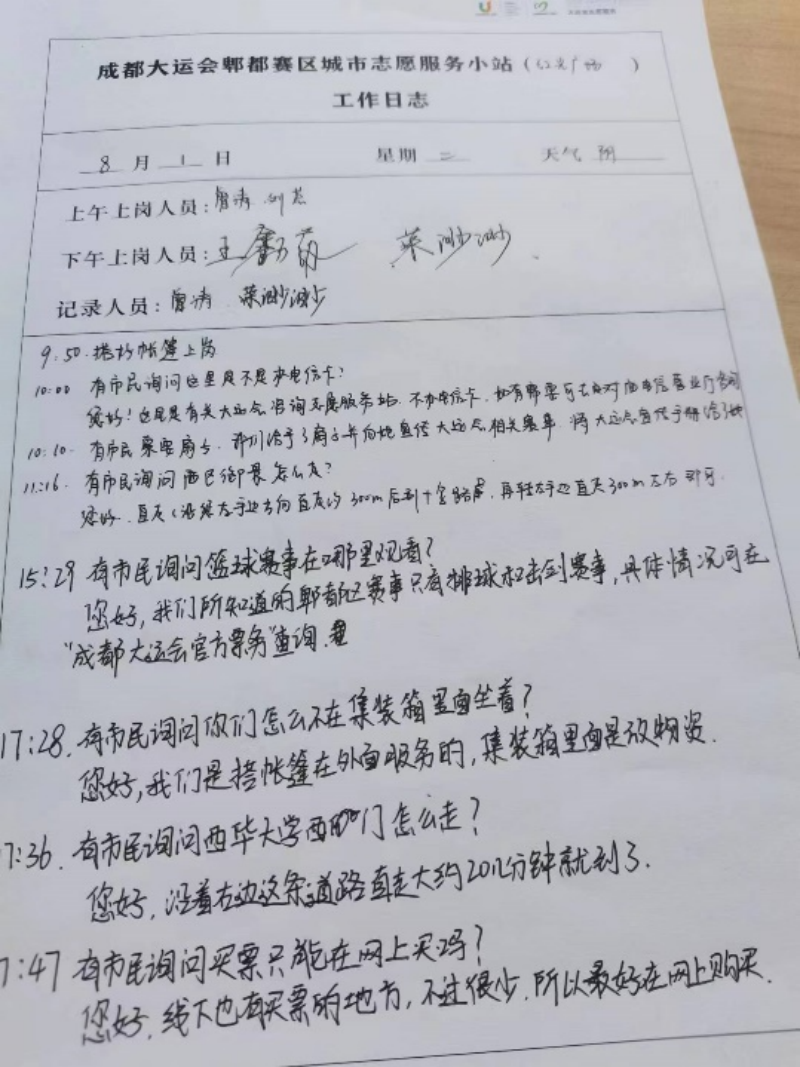 成都大运会郫都赛区城市志愿服务小站（ 广场 ）
工作日志
8 月 1 日 星期 二 天气 阴
上午上岗人员：
下午上岗人员：王 菜渺渺
记录人员： 菜渺渺
9:50. 搭好帐篷上岗
10:00 有市民询问这里是不是办电信卡？
您好！这里是有关大运会咨询志愿服务站. 不办电信卡. 如有需要可去对面电信营业厅
10:10. 有市民索要扇子. 我们给予了扇子并向她宣传大运会相关赛事. 将大运会宣传手册给了她
11:16. 有市民询问 西巴御景 怎么走？
您好. 直走 左手边方向直走约 300m 后到十字路口, 再 左手边直走300m左右 即可.
15:29 有市民询问篮球赛事在哪里观看？
您好, 我们所知道的郫都区赛事只有排球和击剑赛事, 具体情况可在
“成都大运会官方票务”查询.
17:28. 有市民询问你们怎么不在集装箱里面坐着？
您好, 我们是搭帐篷在外面服务的, 集装箱里面是放物资.
7:36. 有市民询问西华大学西 门怎么走？
您好, 沿着右边这条道路直走大约20几分钟就到了.
7:47 有市民询问买票只能在网上买吗？
您好, 线下也有买票的地方, 不过很少, 所以最好在网上购买.